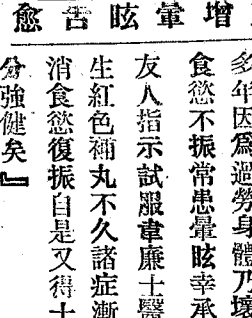 增暈眩告愈
多年因爲過勞身體乃壞
食慾不振常患暈眩幸承
友人指示試服韋廉士醫
生紅色補丸不久諸症漸
消食慾復振自是又得十
分強健矣』